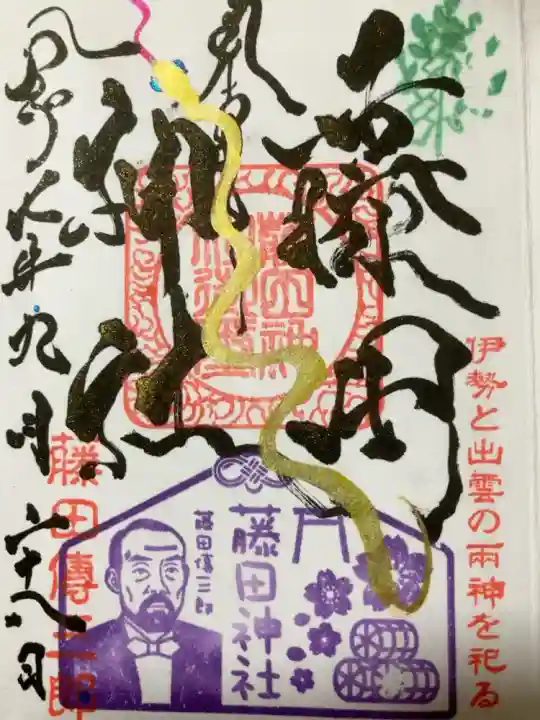 伊勢と出雲の両神を祀る
藤田
奉拝
神社
令和七年九月二十八日
藤田傳三郎
藤田神社
藤田傳三郎